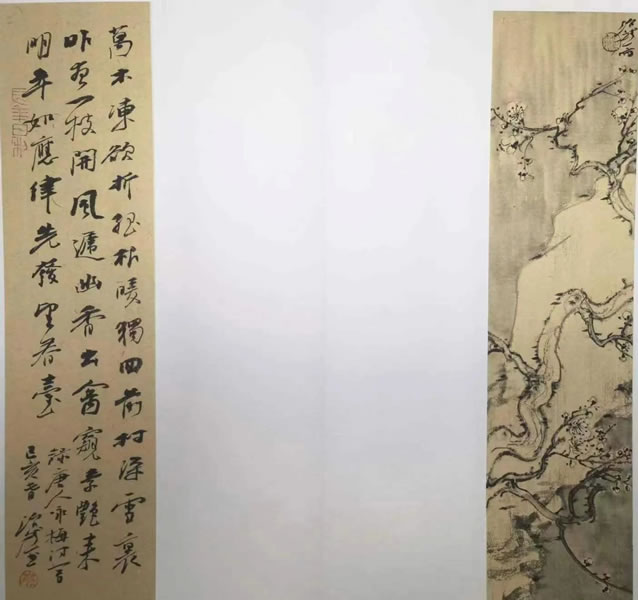 萬木凍欲折孤根暖獨回前村深雪裏
昨夜一枝開風遞幽香出禽窺素艷來
明年如應律先發望春臺
錄唐人詠梅詩一首
己亥春